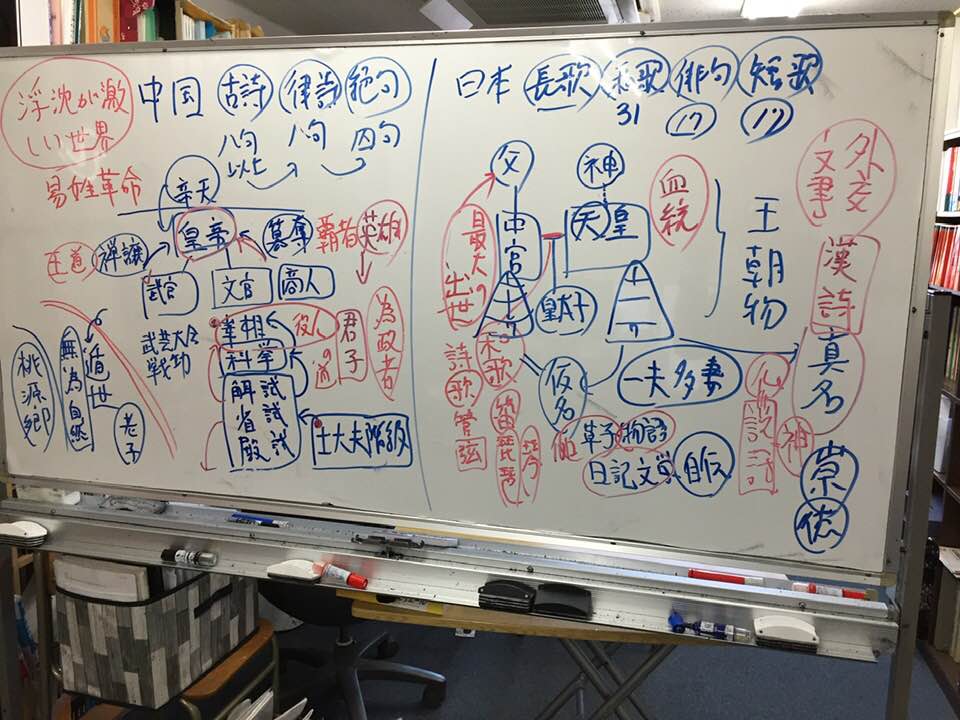 浮沈が激
しい世界
易姓革命
中国 古詩 律詩 絶句
八句
以上
八句
四句
皇帝
王道
禅譲
簒奪
覇者
英雄
武官
文官
商人
武芸大会
戦功
宰相
科挙
解試
省試
殿試
役人
の道
君子
為政者
士大夫階級
桃源郷
無為自然
遁世
老子
日本 長歌 和歌 俳句 短歌
31
17
父
中宮
最大の
出世
神
天皇
血統
皇太子
王朝物
外交
文書
漢詩
真名
一夫多妻
仮名
詩
歌
管弦
和歌
草子
物語
日記文学
神
崇
仏